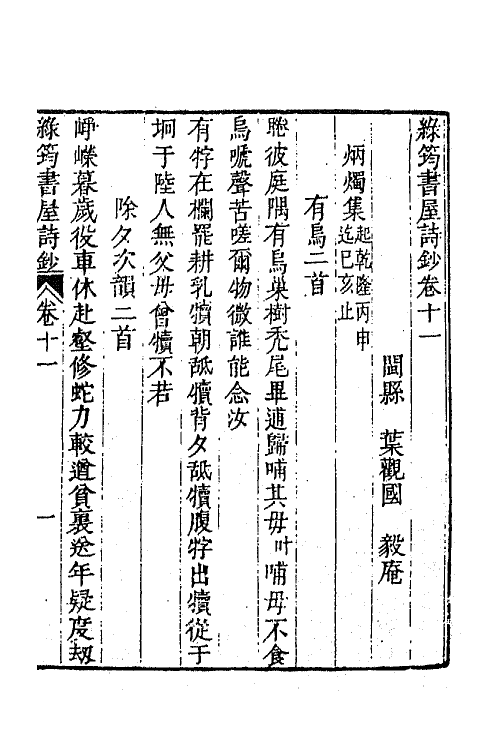 綠筠書屋詩鈔卷十一
閩縣　葉觀國　毅庵
炳燭集起乾隆丙申迄己亥止
有鳥二首
睠彼庭隅有烏巢樹禿尾畢逋歸哺其母叶哺母不食
烏嗁聲苦嗟爾物微誰能念汝
有牸在欄罷耕乳犢朝舐犢背夕舐犢腹牸出犢從于
坰于陸人無父母曾犢不若
除夕次韻二首
崢嶸暮歲役車休赴壑修蛇力較遒貧裏送年疑度刼
綠筠書屋詩鈔　卷十一　一